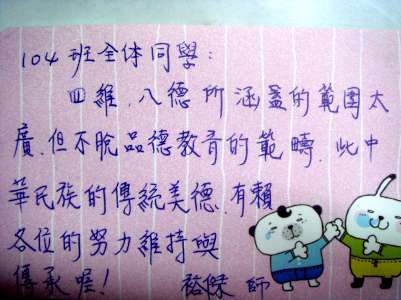 104班全体同學:
四維、八德所涵蓋的範圍太
廣,但不脫品德教育的範疇,此中
華民族的傳統美德,有賴
各位的努力維持與
傳承喔!  裕傑 師